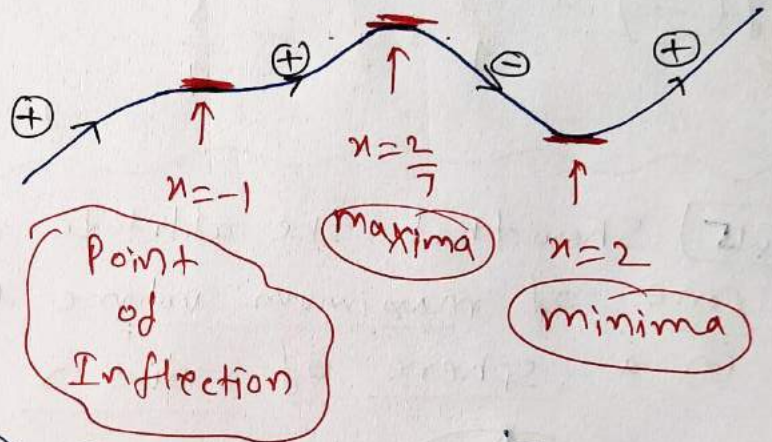 ⊕
⊕
⊖
⊕
x = -1
Point
of
Inflection
x = 2/7
maxima
x = 2
minima